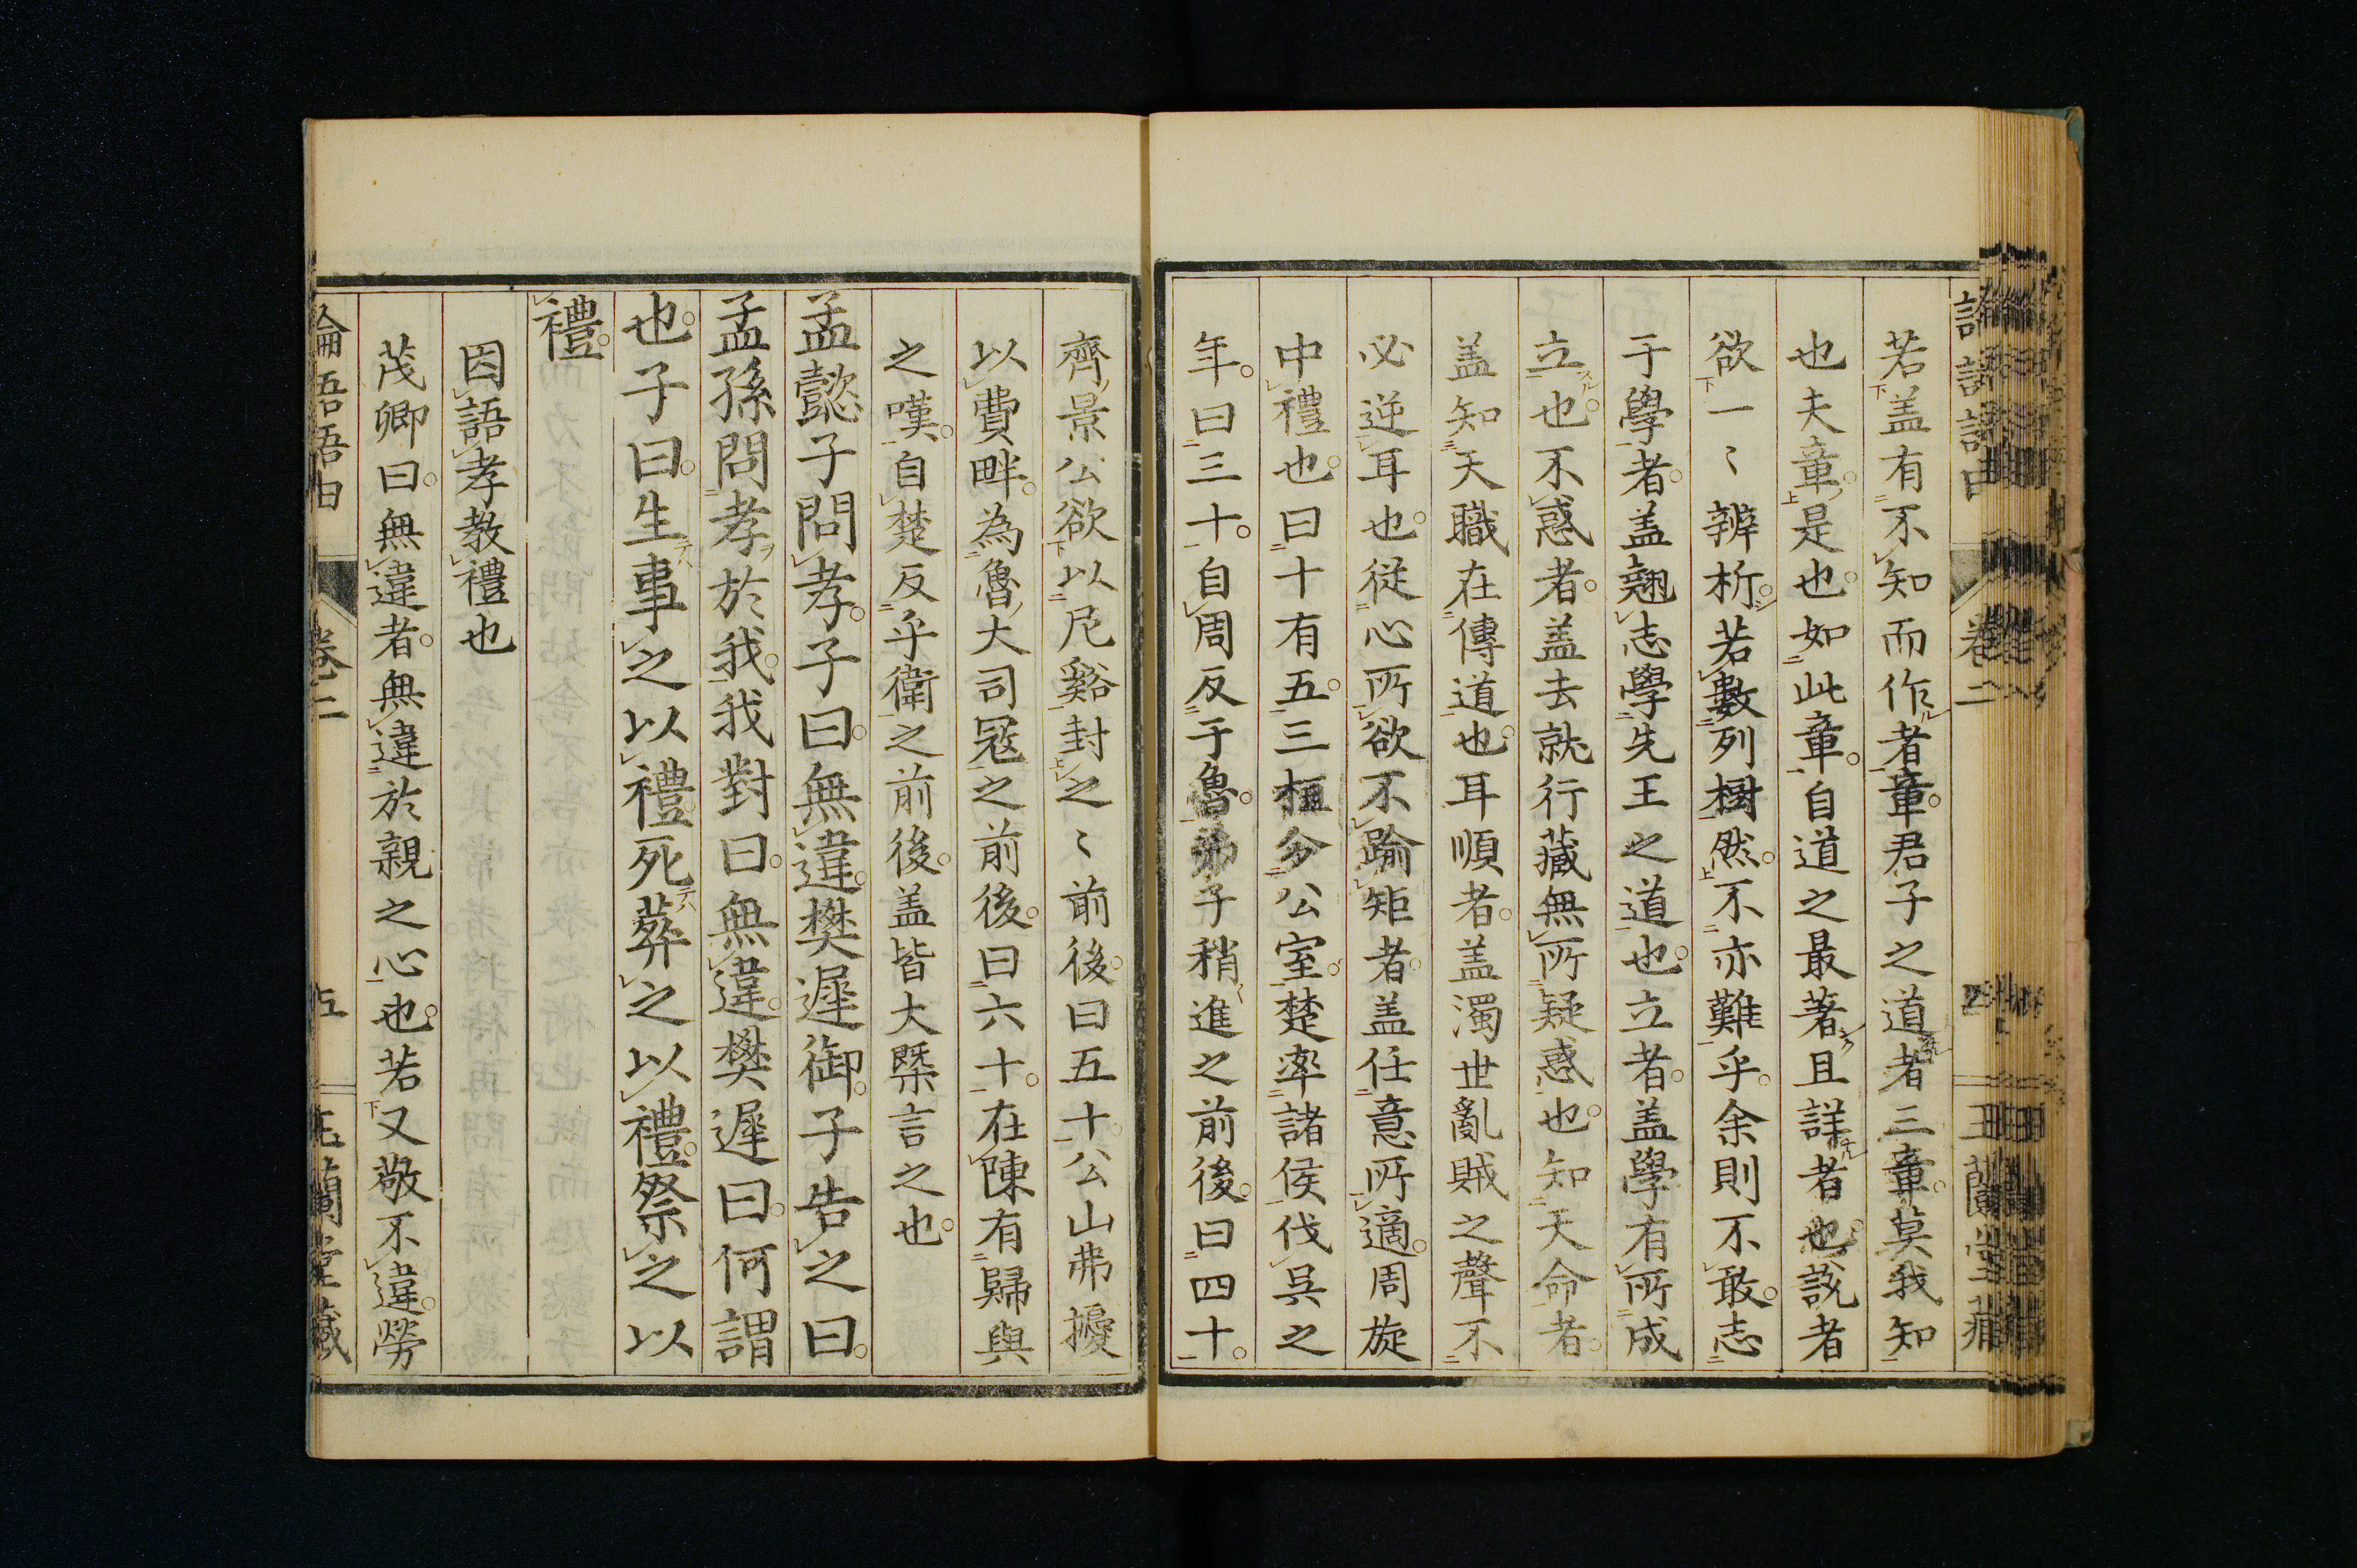 若蓋有不知而作者章君子之道者三章莫我知
也夫章是也如此章自道之最著且詳者也說者
欲一〻辨析若數列樹然不亦難乎余則不敢志
于學者蓋翹志學先王之道也立者蓋學有所成
立也不惑者蓋去就行藏無所疑惑也知天命者
蓋知天職在傳道也耳順者蓋濁世亂賊之聲不
必逆耳也從心所欲不踰矩者蓋任意所適周旋
中禮也曰十有五三桓分公室楚率諸侯伐吳之
年曰三十自周反于魯弟子稍進之前後曰四十
齊景公欲以尼谿封之〻前後曰五十公山弗擾
以費畔為魯大司寇之前後曰六十在陳有歸與
之嘆自楚反乎衛之前後蓋皆大槩言之也
孟懿子問孝子曰無違樊遲御子告之曰
孟孫問孝於我我對曰無違樊遲曰何謂
也子曰生事之以禮死葬之以禮祭之以
禮
因語孝教禮也
茂卿曰無違者無違於親之心也若又敬不違勞
論語語由 卷二 五 玉蘭堂藏